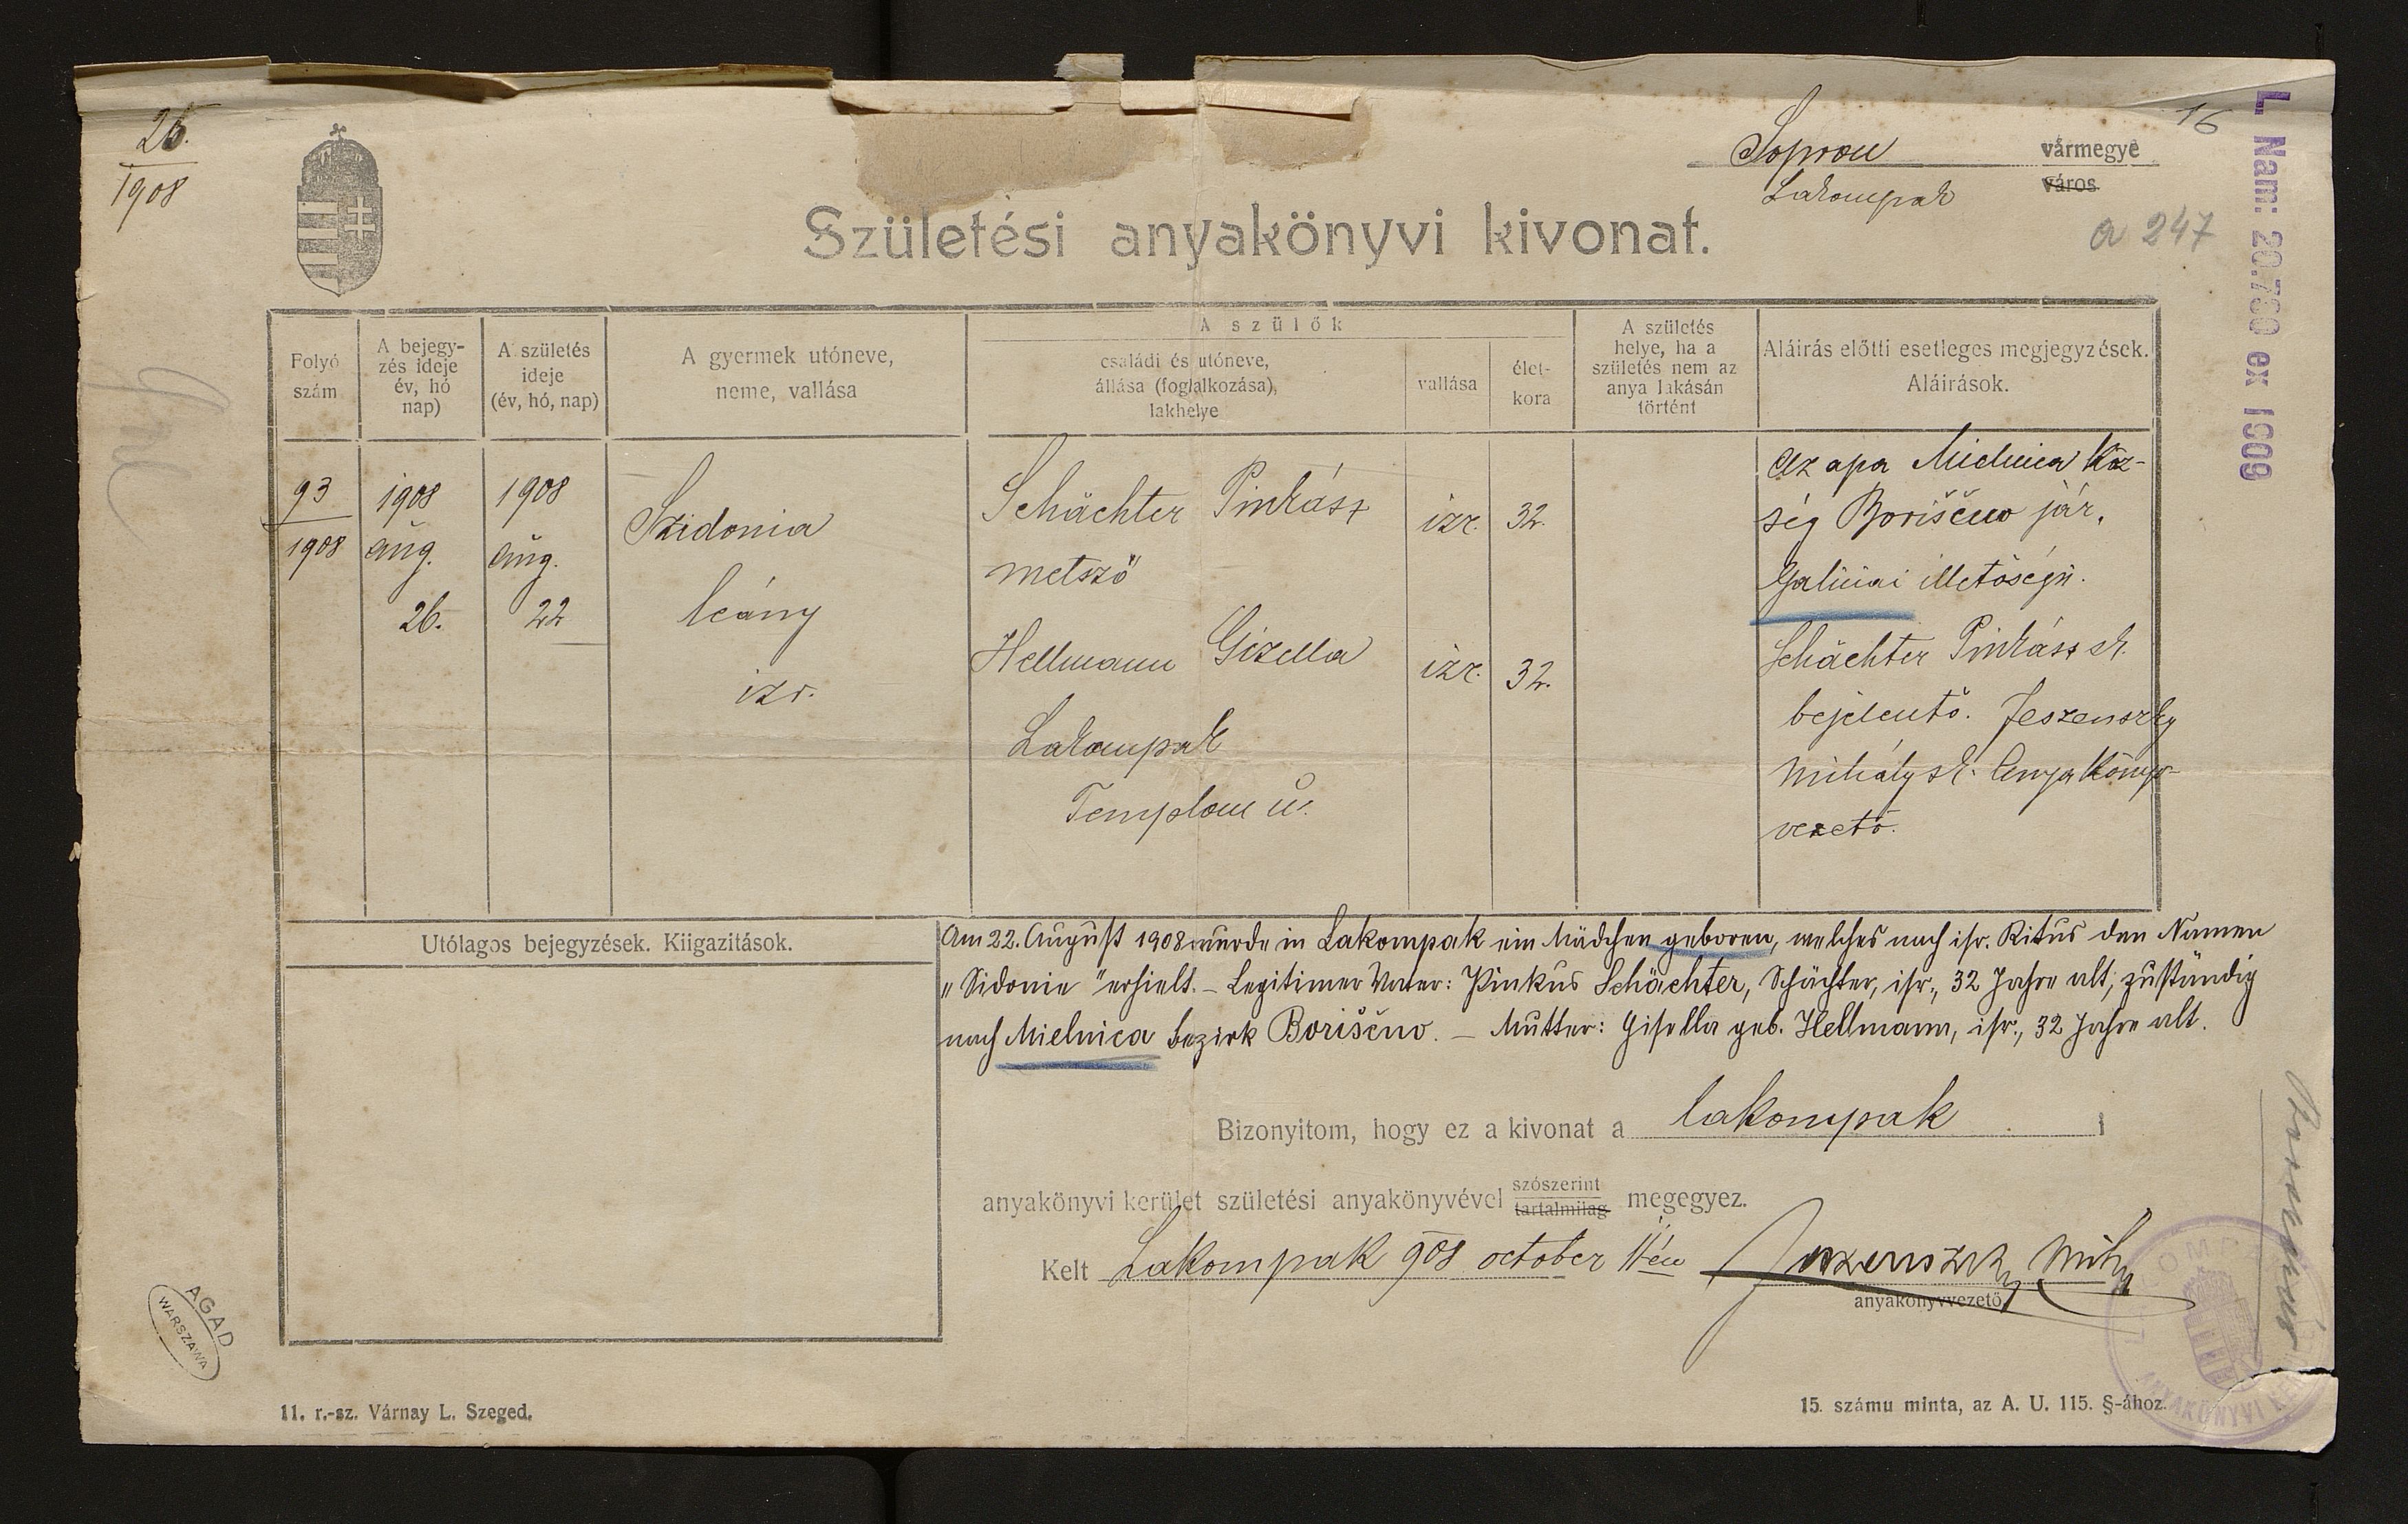 26.
1908
16
Sopron vármegye
Lakompak város
a 247
L. Nam: 20.760 ex 1909
Születési anyakönyvi kivonat.
Folyó szám
A bejegyzés ideje év, hó nap)
A születés ideje (év, hó, nap)
A gyermek utóneve, neme, vallása
A szülők
családi és utóneve, állása (foglalkozása), lakhelye
vallása
életkora
A születés helye, ha a születés nem az anya lakásán történt
Aláirás előtti esetleges megjegyzések. Aláirások.
93
1908
1908 aug. 26.
1908 aug. 22
Szidonia
leány
izr.
Schächter Pinkász izr. 32.
metsző
Hellmann Gizella izr. 32.
Lakompak
Templom u.
Az apa Mielnica köz-
ség Boriščuv jár.
Galiciai illetőségü.
Schächter Pinkász sk.
bejelentő. Jeszenszky
Mihály sk. anyakönyv-
vezető.
Utólagos bejegyzések. Kiigazitások.
Am 22. August 1908 wurde in Lakompak ein Mädchen geboren, welches nach isr. Ritus den Namen
„Sidonie" erhielt. – Legitimer Vater: Pinkus Schächter, Schächter, isr., 32 Jahre alt, zuständig
nach Mielnica bezirk Boriščuv. – Mutter: Gisella geb. Hellmann, isr., 32 Jahre alt.
Bizonyitom, hogy ez a kivonat a lakompak i
anyakönyvi kerület születési anyakönyvével szószerint tartalmilag megegyez.
Kelt Lakompak 908 october 11-én Jeszenszky Mihály
anyakönyvvezető
AGAD
WARSZAWA
11. r.-sz. Várnay L. Szeged.
15. számu minta, az A. U. 115. §-ához.